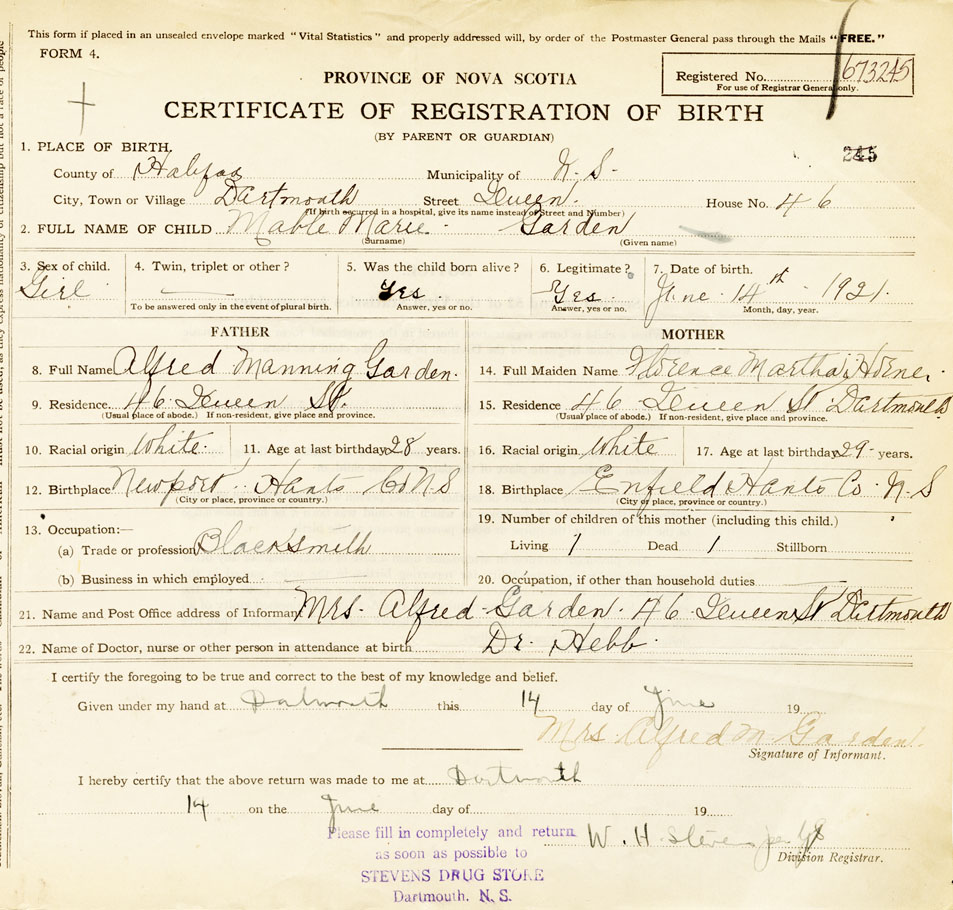 This form if placed in an unsealed envelope marked "Vital Statistics" and properly addressed will, by order of the Postmaster General pass through the Mails "FREE."
FORM 4.
PROVINCE OF NOVA SCOTIA
Registered No. 673245
For use of Registrar General only.
CERTIFICATE OF REGISTRATION OF BIRTH
(BY PARENT OR GUARDIAN)
245
1. PLACE OF BIRTH.
County of Halifax Municipality of N. S.
City, Town or Village Dartmouth Street Queen. House No. 46
(If birth occurred in a hospital, give its name instead of Street and Number)
2. FULL NAME OF CHILD Mable Marie. Garden
(Surname) (Given name)
3. Sex of child. 4. Twin, triplet or other? 5. Was the child born alive? 6. Legitimate? 7. Date of birth.
Girl — Yes. Yes. June 14th 1921.
To be answered only in the event of plural birth. Answer, yes or no. Answer, yes or no. Month, day, year.
FATHER MOTHER
8. Full Name Alfred Manning Garden. 14. Full Maiden Name Florence Martha Horne.
9. Residence. 46 Queen St. 15. Residence 46 Queen St Dartmouth
(Usual place of abode.) If non-resident, give place and province. (Usual place of abode.) If non-resident, give place and province.
10. Racial origin White. 11. Age at last birthday 28 years. 16. Racial origin White 17. Age at last birthday 29 years.
12. Birthplace Newport. Hants Co N S 18. Birthplace Enfield Hants Co. N. S
(City or place, province or country.) (City or place, province or country.)
13. Occupation:— 19. Number of children of this mother (including this child.)
(a) Trade or profession Blacksmith Living 1 Dead 1 Stillborn
(b) Business in which employed — 20. Occupation, if other than household duties —
21. Name and Post Office address of Informant Mrs. Alfred Garden. 46 Queen St Dartmouth
22. Name of Doctor, nurse or other person in attendance at birth Dr. Hebb.
I certify the foregoing to be true and correct to the best of my knowledge and belief.
Given under my hand at Dartmouth this 14 day of June 19
Mrs Alfred M Garden.
Signature of Informant.
I hereby certify that the above return was made to me at Dartmouth
14 on the June day of 19
Please fill in completely and return
as soon as possible to
STEVENS DRUG STORE
Dartmouth. N. S.
W. H. Stevens per
Division Registrar.